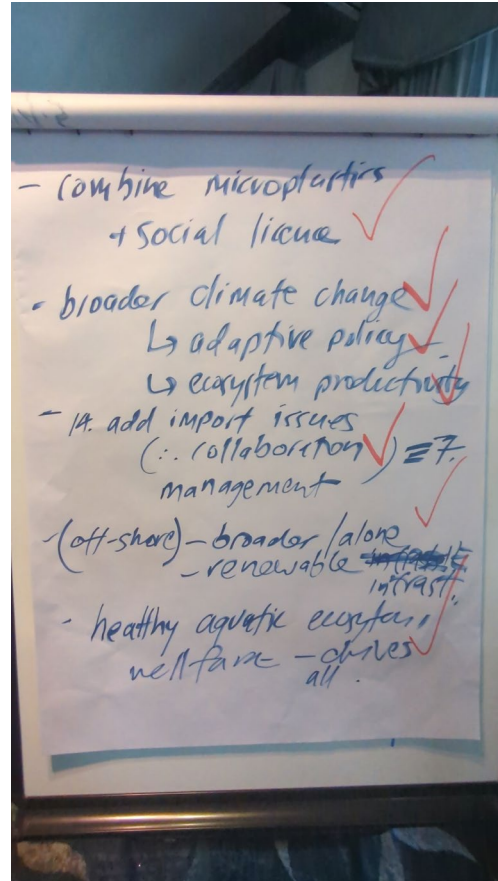 - combine microplastics
+ social licence
- broader climate change
↳ adaptive policy
↳ ecosystem productivity
- 14. add import issues
(∴ collaboration) ≡ 7.
management
- (off-shore) - broader / alone
- renewable
infrast.
- healthy aquatic ecosystem
wellfare - drives
all.